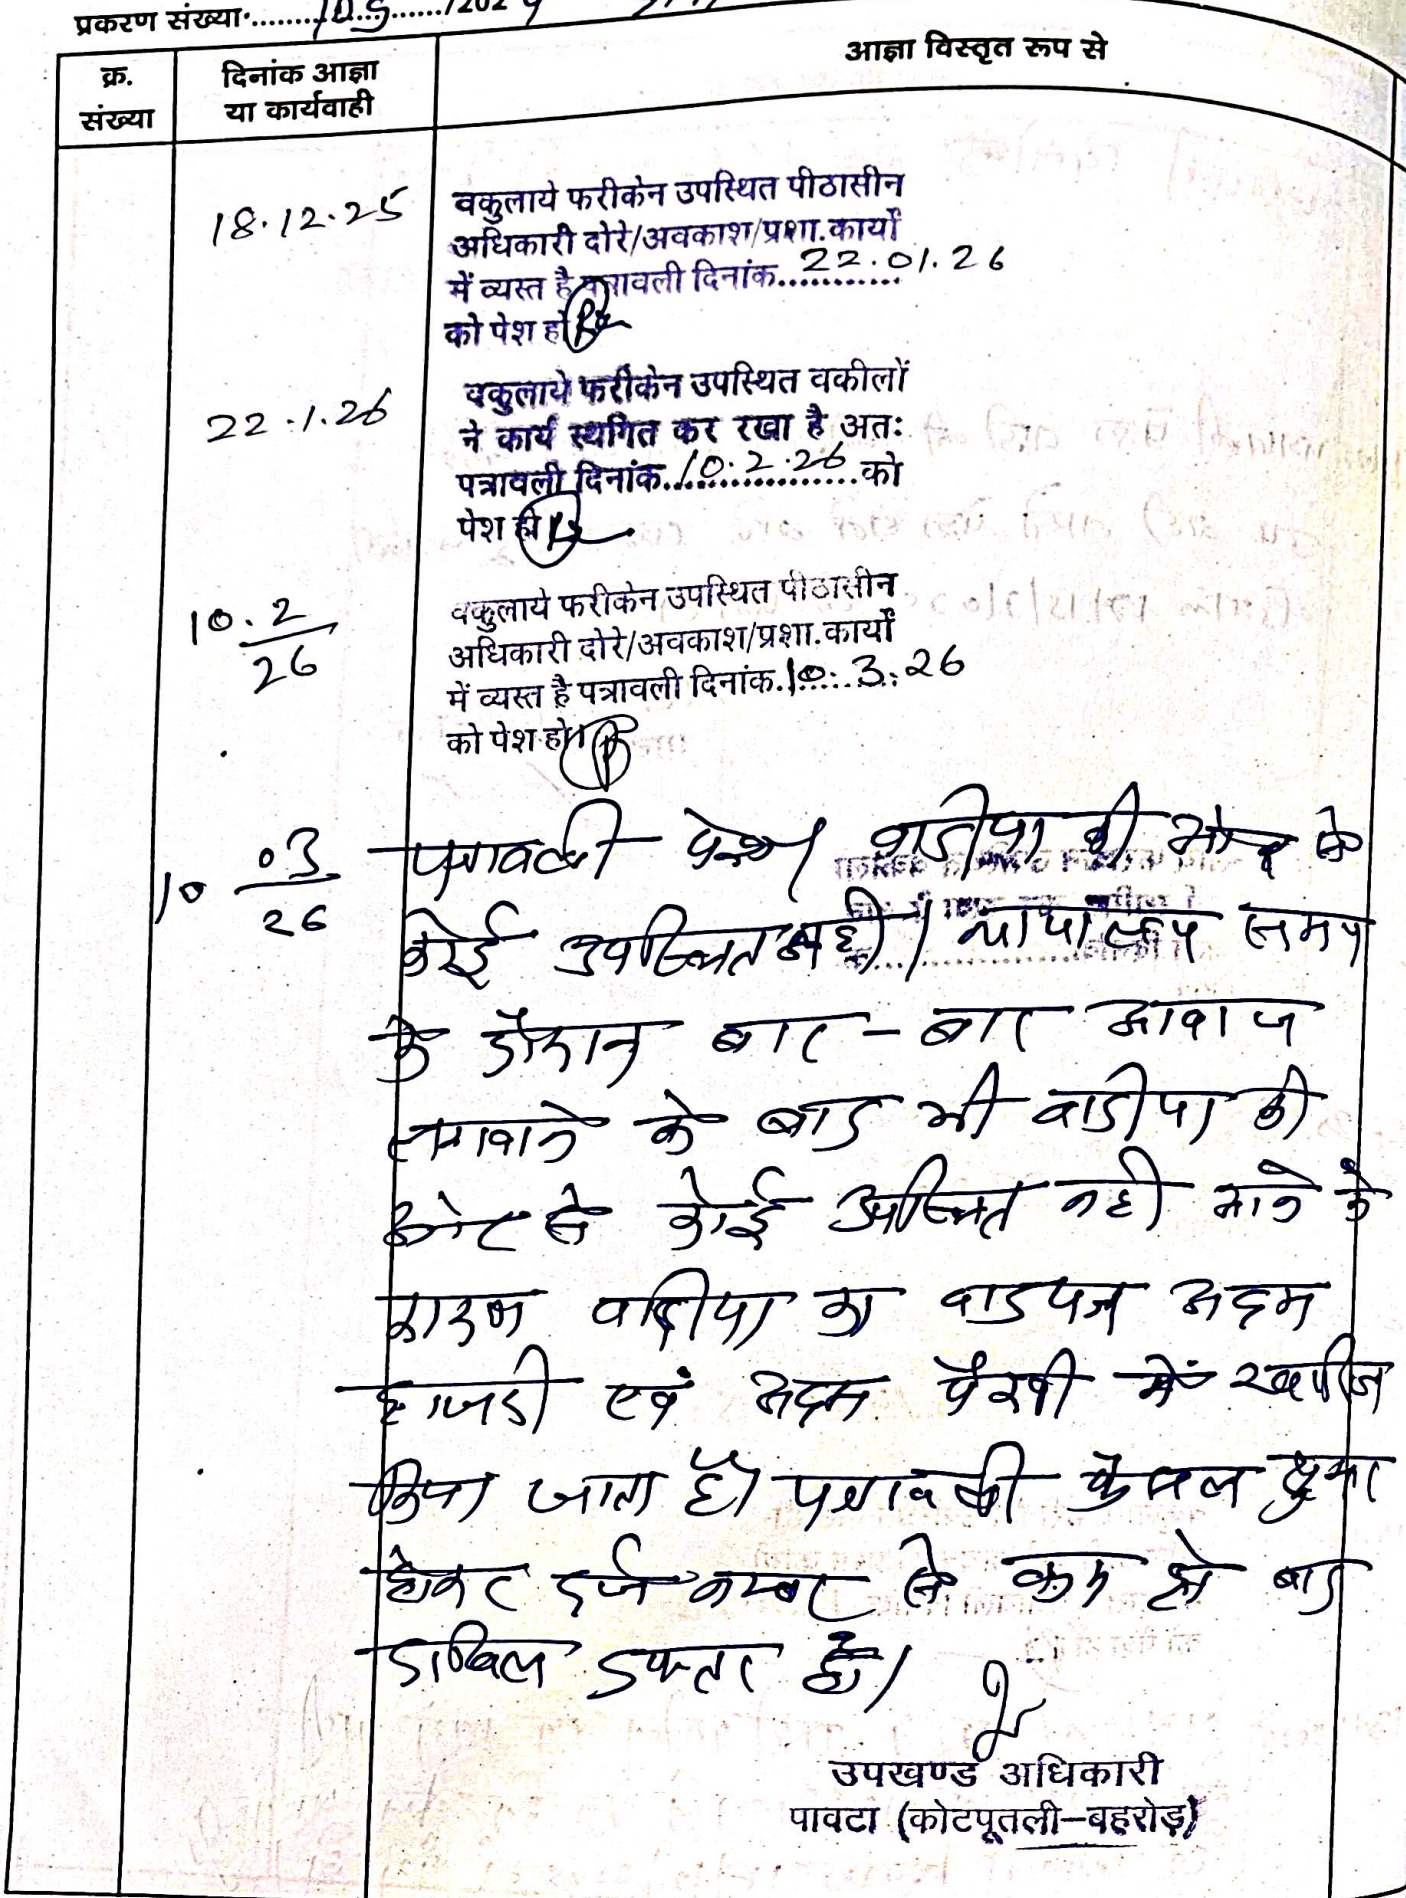 प्रकरण संख्या............/202
क्र. संख्या
दिनांक आज्ञा या कार्यवाही
आज्ञा विस्तृत रूप से
18.12.25
वकुलाये फरीकेन उपस्थित पीठासीन
अधिकारी दोरे/अवकाश/प्रशा.कार्यों
में व्यस्त है पत्रावली दिनांक...22.01.26
को पेश हो
22.1.26
वकुलाये फरीकेन उपस्थित वकीलों
ने कार्य स्थगित कर रखा है अतः
पत्रावली दिनांक.10.2.26.को
पेश हो
10.2/26
वकुलाये फरीकेन उपस्थित पीठासीन
अधिकारी दोरे/अवकाश/प्रशा.कार्यों
में व्यस्त है पत्रावली दिनांक.10.3.26
को पेश हो
10 03/26
पत्रावली पेश। वादीया की ओर से
कोई उपस्थित नही। न्यायालय समय
के दौरान बार-बार आवाज
लगवाने के बाद भी वादीया की
ओर से कोई उपस्थित नही आने के
कारण वादीया का वादपत्र अदम
हाजरी एवं अदम पैरवी में खारीज
किया जाता है। पत्रावली फैसल शुमार
होकर दर्ज नम्बर से कम हो बाद
दाखिल दफ्तर हो।
उपखण्ड अधिकारी
पावटा (कोटपूतली-बहरोड़)